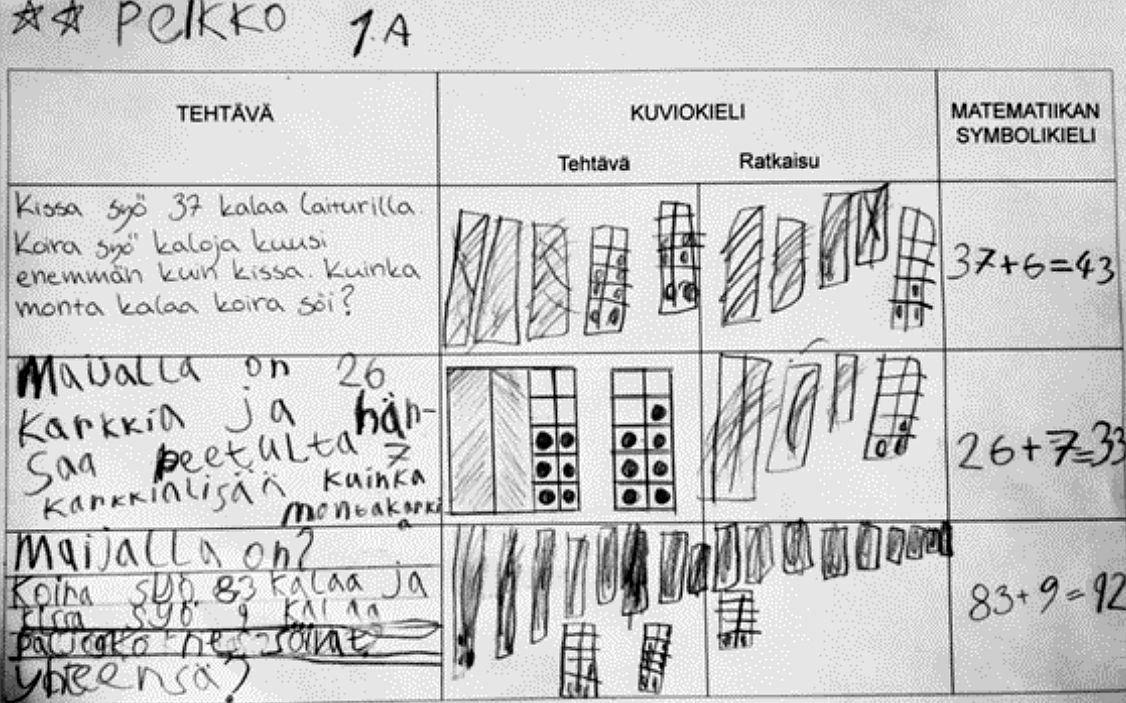 Pelkko 1.A
TEHTÄVÄ
KUVIOKIELI
MATEMATIIKAN
SYMBOLIKIELI
Tehtävä
Ratkaisu
Kissa syö 37 kalaa laiturilla.
Koira syö kaloja kuusi
enemmän kuin kissa. Kuinka
monta kalaa koira söi?
37+6=43
Maijalla on 26
Karkkia ja hän-
Saa peetulta 7
karkkialisän kuinka
montakarki
a
Maijalla on?
26+7=33
Koira syö 83 kalaa ja
kissa syö 9 kalaa
paljoko he söivät
yhteensä?
83+9=92